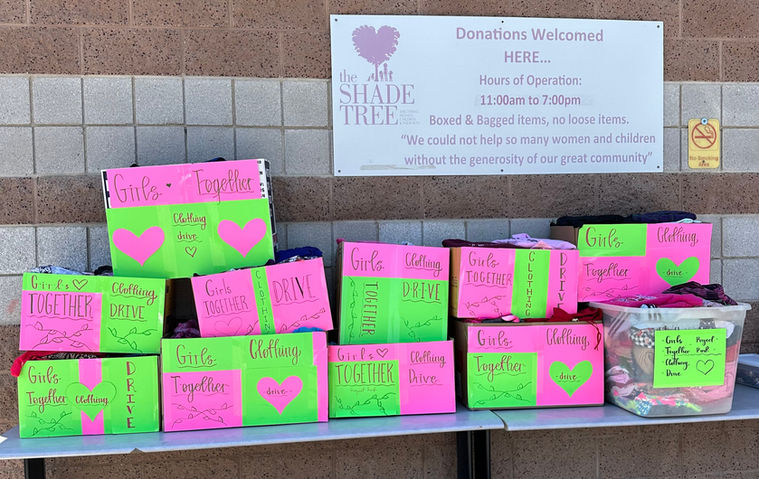 the
SHADE
TREE
Donations Welcomed
HERE...
Hours of Operation:
11:00am to 7:00pm
Boxed & Bagged items, no loose items.
"We could not help so many women and children
without the generosity of our great community"
No Smoking
Girls Together
Clothing
drive
Girls
TOGETHER
Clothing
DRIVE
Girls
TOGETHER
CLOTHING
DRIVE
Girls
TOGETHER
Clothing
DRIVE
Girls
TOGETHER
CLOTHING
DRIVE
Girls
Together
Clothing
drive
Girls
Together
Clothing
DRIVE
Girls
Together
Clothing
drive
Girls
TOGETHER
Clothing
Drive
Girls
Together
Clothing
drive
Girls
Together
Clothing
Drive
Project